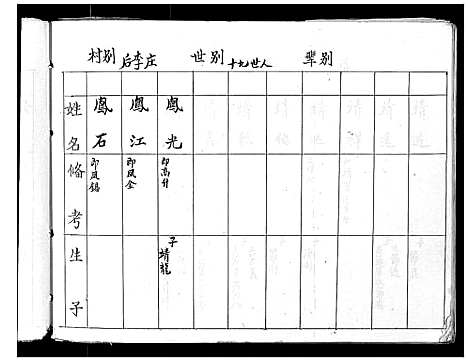 村别 后李庄 世别 十九世人 辈别
姓名 鳳石 鳳江 鳳光
备考 即凤錫 即凤全 即高升
生子 子靖龍